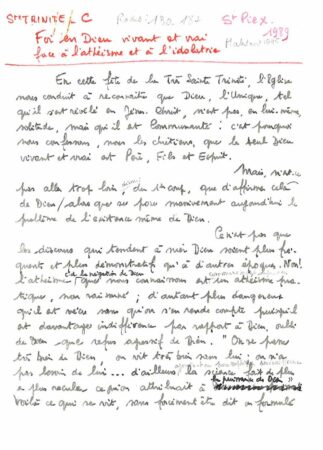 Ste TRINITE - C
St Piex
1989
Foi en Dieu vivant et vrai
face à l'athéisme et à l'idolatrie
En cette fête de la Très Sainte Trinité, l'Eglise
nous conduit à reconnaître que Dieu, l'Unique, tel
qu'il s'est révélé en Jésus Christ, n'est pas, en lui-même,
solitude, mais qu'il est Communauté : c'est pourquoi
nous confessons, nous les chrétiens, que le seul Dieu
vivant et vrai est Père, Fils et Esprit.
Mais, n'est-ce
pas aller trop loin, du 1er coup, que d'affirmer cela
de Dieu / alors que se pose massivement aujourd'hui le
problème de l'existence même de Dieu.
Ce n'est pas que
les discours qui tendent à nier Dieu soient plus fré-
quents et plus démonstratifs qu'à d'autres époques. Non!
c'd la négation de Dieu
l'athéisme que nous connaissons est un athéisme pra-
tique, non raisonné ; d'autant plus dangereux
qu'il est vécu sans qu'on s'en rende compte puisqu'il
est davantage indifférence par rapport à Dieu, oubli
de Dieu que refus agressif de Dieu. "On se passe
très bien de Dieu, on vit très bien sans lui : on n'a
pas besoin de lui... d'ailleurs la science fait de plus
en plus reculer ce qu'on attribuait à la puissance de Dieu"
Voilà ce qui se vit, sans forcément être dit ou formulé